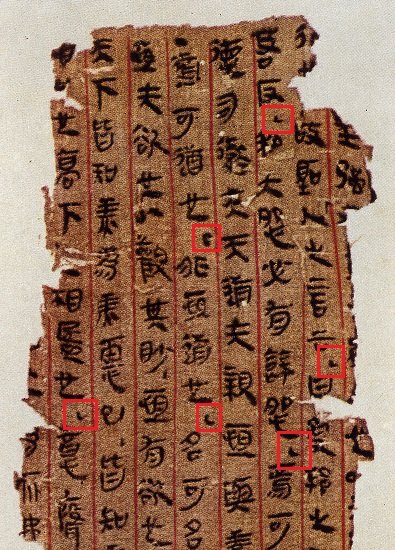 故聖人之言云曰受邦之
若反和大怨必有餘怨焉可
德司徹夫天道无親恒與善
・道可道也非恒道也名可名
恒无欲也以觀其眇恒有欲也
天下皆知美為美惡已皆知
也高下之相盈也意聲